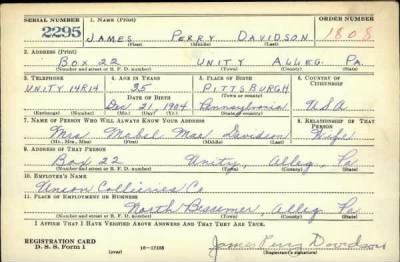 SERIAL NUMBER 1. NAME (Print) ORDER NUMBER
2295 JAMES PERRY DAVIDSON 1808
(First) (Middle) (Last)
2. ADDRESS (Print)
BOX 22 UNITY ALLEG. PA.
(Number and street or R. F. D. number) (Town) (County) (State)
3. TELEPHONE 4. AGE IN YEARS 5. PLACE OF BIRTH 6. COUNTRY OF CITIZENSHIP
UNITY. 14R14 35 PITTSBURGH
DATE OF BIRTH (Town or county)
Dec. 21, 1904 Pennsylvania U.S.A
(Exchange) (Number) (Mo.) (Day) (Yr.) (State or country)
7. NAME OF PERSON WHO WILL ALWAYS KNOW YOUR ADDRESS 8. RELATIONSHIP OF THAT PERSON
Mrs Mabel Mae Davidson Wife
(Mr., Mrs., Miss) (First) (Middle) (Last)
9. ADDRESS OF THAT PERSON
Box 22 Unity, Alleg, Pa
(Number and street or R. F. D. number) (Town) (County) (State)
10. EMPLOYER'S NAME
Union Collieries Co
11. PLACE OF EMPLOYMENT OR BUSINESS
North Bessemer, Alleg Pa.
(Number and street or R. F. D. number) (Town) (County) (State)
I AFFIRM THAT I HAVE VERIFIED ABOVE ANSWERS AND THAT THEY ARE TRUE.
REGISTRATION CARD James Perry Davidson
D. S. S. Form 1 (over) 16—17105 (Registrant's signature)